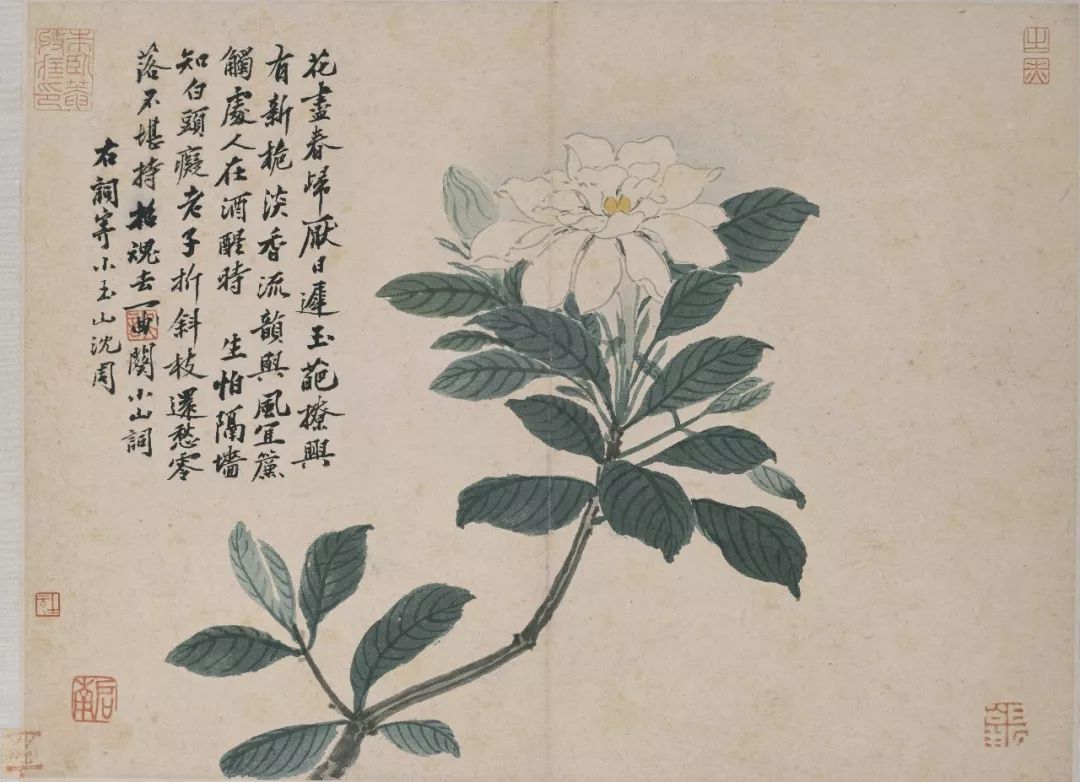 花盡春歸厭日遲玉葩撩興
有新梔淡香流韻與風宜簾
觸處人在酒醒時 生怕隔墻
知白頭癡老子折斜枝還愁零
落不堪持招魂去一曲闋小山詞
右詞寄小玉山沈周
朱臥菴收藏印
启南